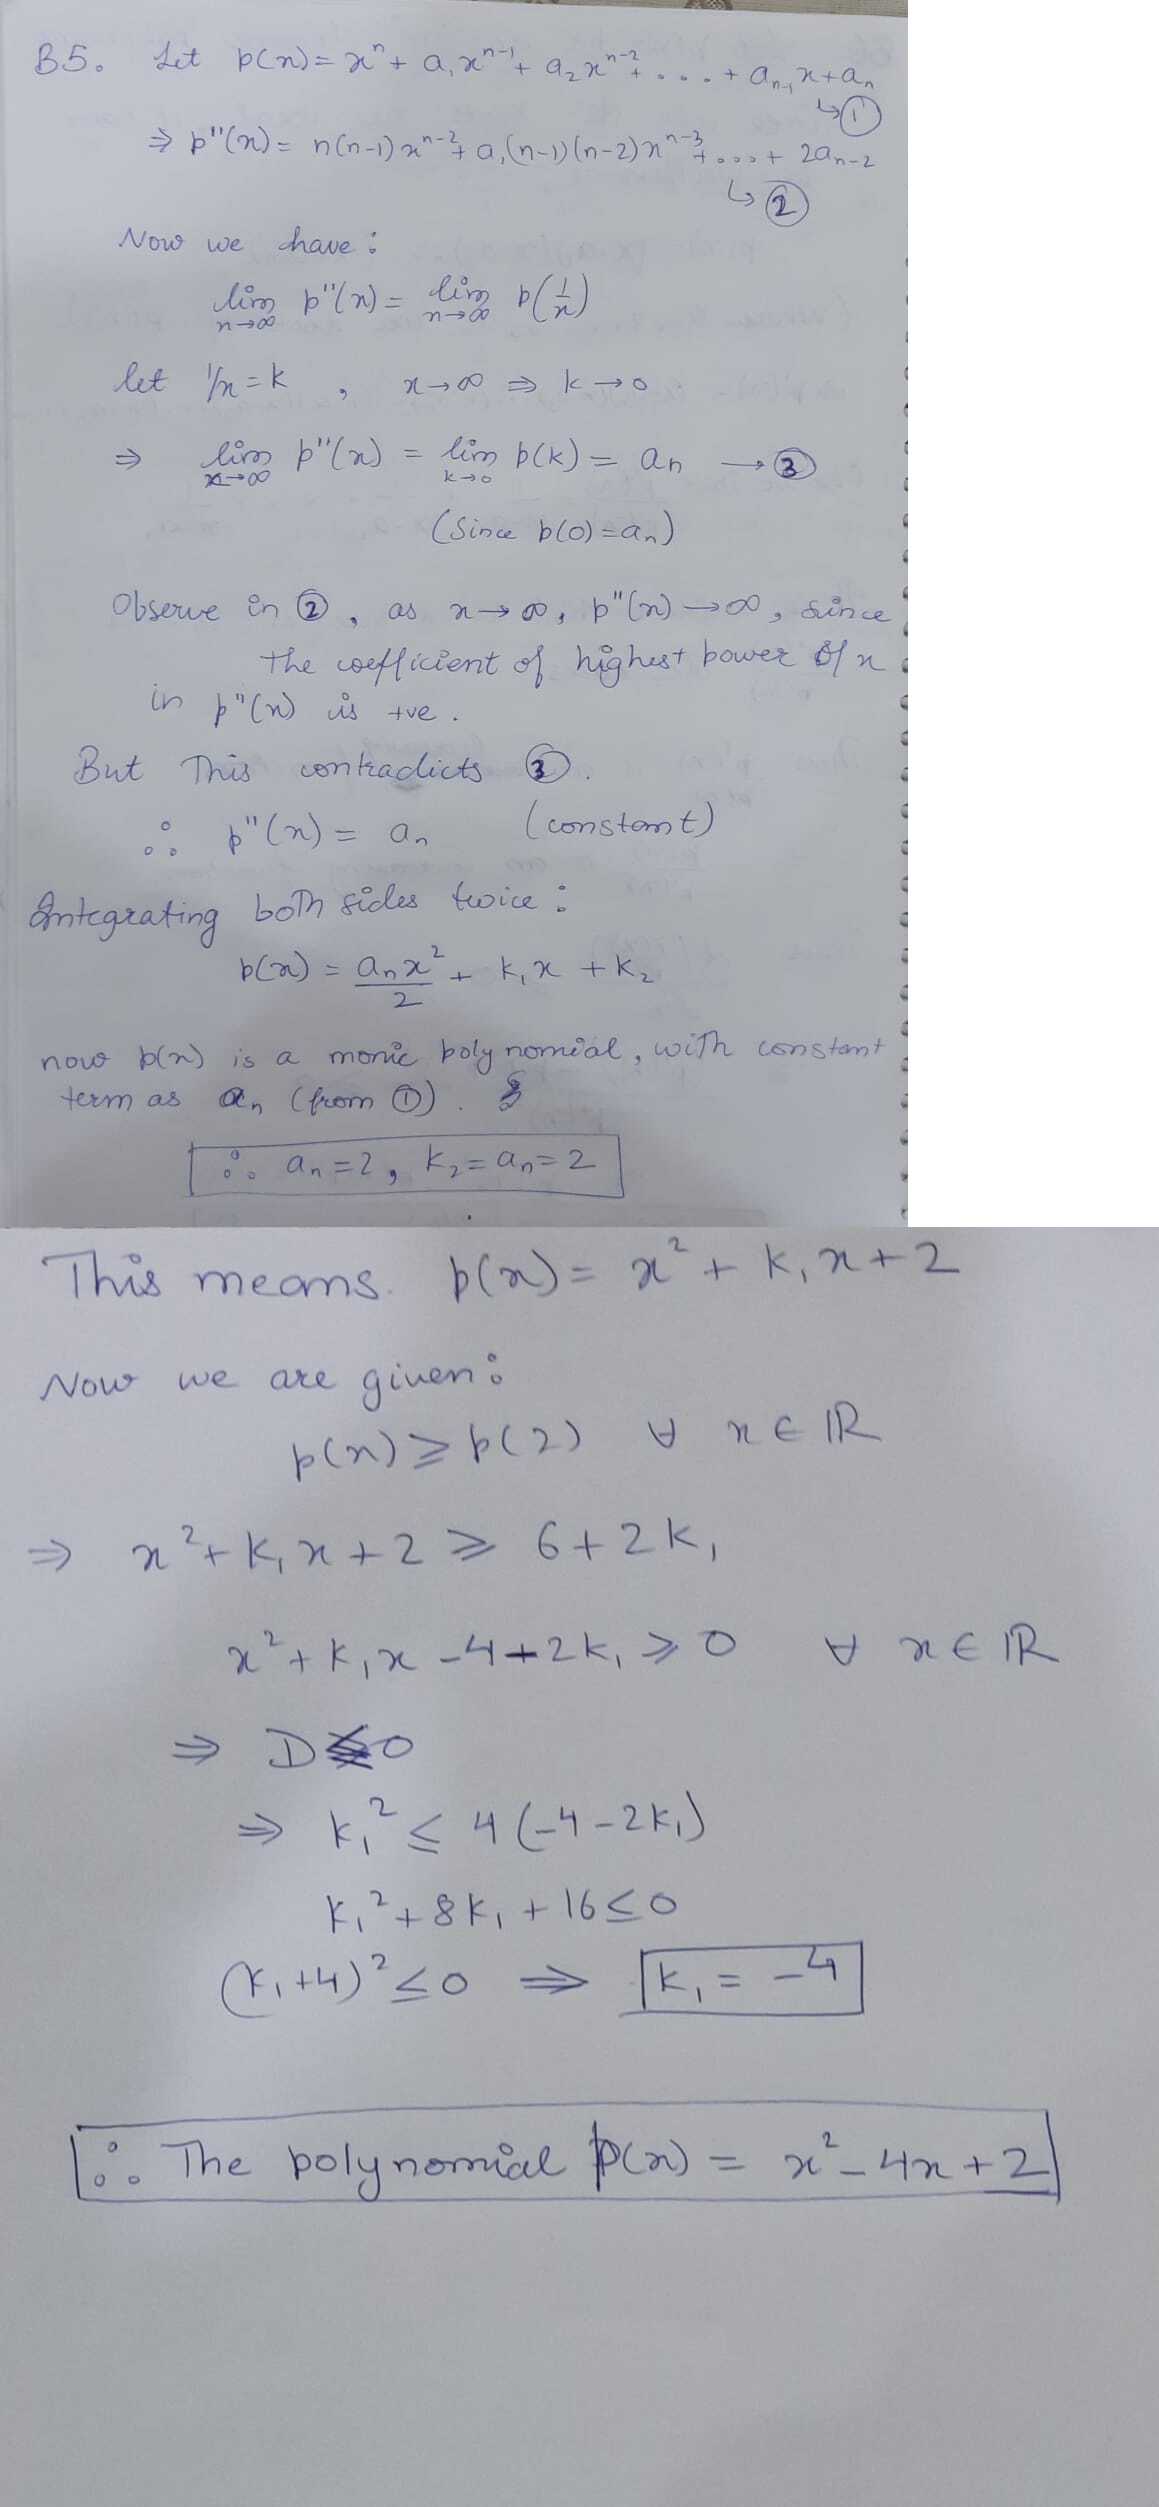 B5. Let p(x) = xⁿ + a₁xⁿ⁻¹ + a₂xⁿ⁻² + .... + aₙ₋₁x + aₙ
↳ ①
⇒ p''(x) = n(n-1)xⁿ⁻² + a₁(n-1)(n-2)xⁿ⁻³ + .... + 2aₙ₋₂
↳ ②
Now we have:
lim n→∞ p''(x) = lim n→∞ p(1/x)
let 1/x = k , x→∞ ⇒ k→0
⇒ lim x→∞ p''(x) = lim k→0 p(k) = aₙ → ③
(Since p(0) = aₙ)
Observe in ②, as x→∞, p''(x)→∞, since
the coefficient of highest power of x
in p''(x) is +ve.
But This contradicts ③.
∴ p''(x) = aₙ (constant)
Integrating both sides twice:
p(x) = aₙx²/2 + k₁x + k₂
now p(x) is a monic polynomial, with constant
term as aₙ (from ①).
∴ aₙ = 2, k₂ = aₙ = 2
This means. p(x) = x² + k₁x + 2
Now we are given:
p(x) ≥ p(2) ∀ x ∈ ℝ
⇒ x² + k₁x + 2 ≥ 6 + 2k₁
x² + k₁x - 4 + 2k₁ ≥ 0 ∀ x ∈ ℝ
⇒ D ≤ 0
⇒ k₁² ≤ 4(-4 - 2k₁)
k₁² + 8k₁ + 16 ≤ 0
(k₁+4)² ≤ 0 ⇒ k₁ = -4
∴ The polynomial p(x) = x² - 4x + 2